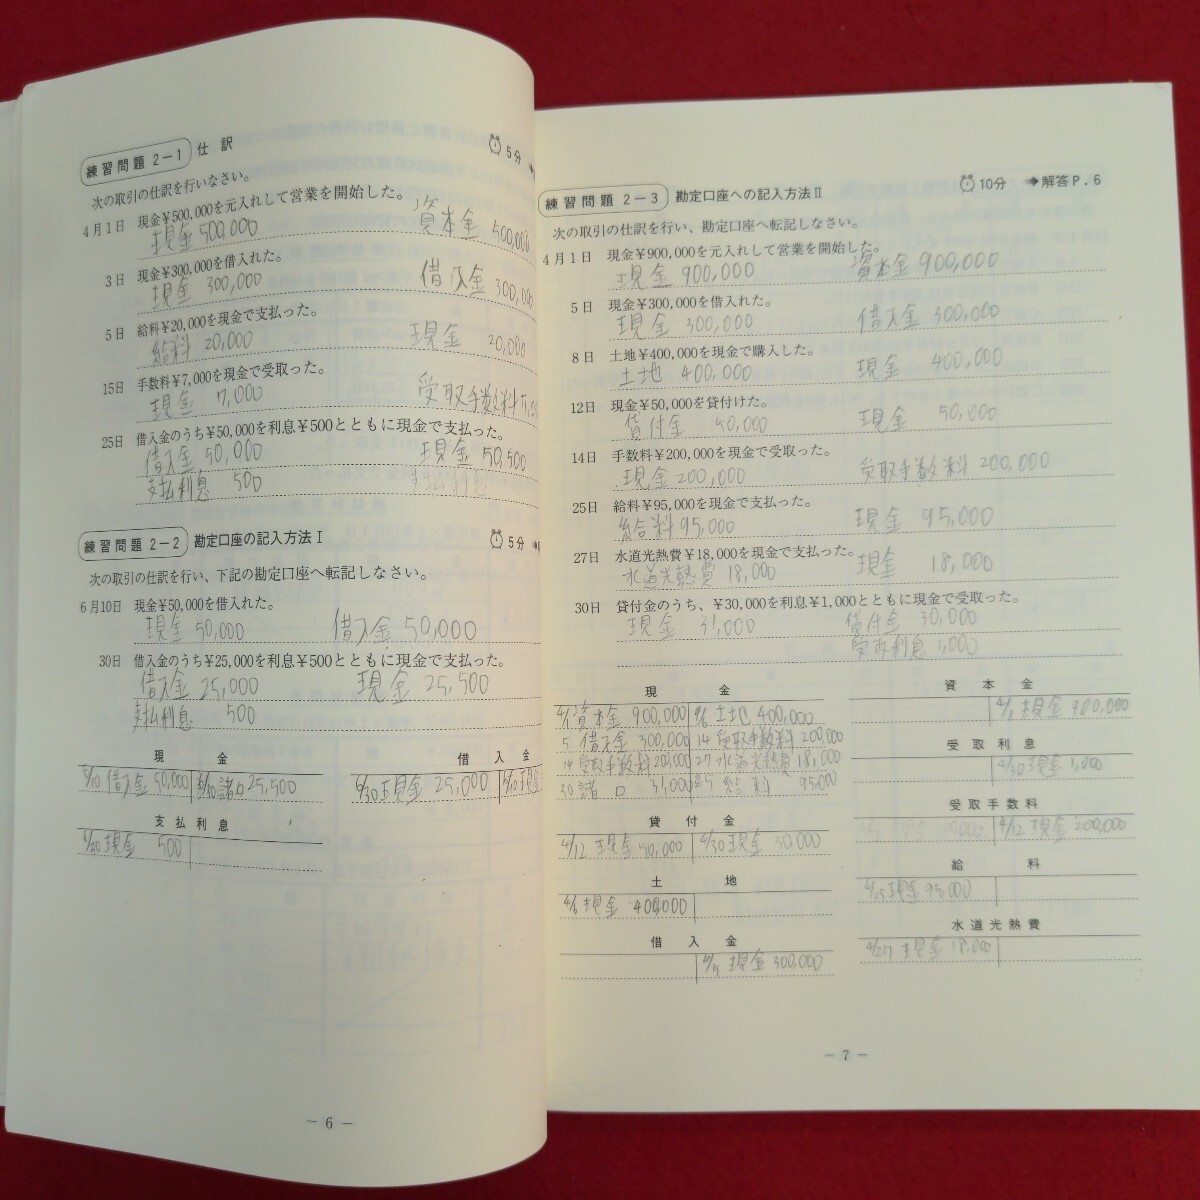 練習問題 2－1 仕訳 5分
次の取引の仕訳を行いなさい。
4月1日 現金¥500,000を元入れして営業を開始した。
現金 500,000 資本金 500,000
3日 現金¥300,000を借入れた。
現金 300,000 借入金 300,000
5日 給料¥20,000を現金で支払った。
給料 20,000 現金 20,000
15日 手数料¥7,000を現金で受取った。
現金 7,000 受取手数料
25日 借入金のうち¥50,000を利息¥500とともに現金で支払った。
借入金 50,000 現金 50,500
支払利息 500 支払利息
練習問題 2－2 勘定口座の記入方法Ⅰ 5分
次の取引の仕訳を行い、下記の勘定口座へ転記しなさい。
6月10日 現金¥50,000を借入れた。
現金 50,000 借入金 50,000
30日 借入金のうち¥25,000を利息¥500とともに現金で支払った。
借入金 25,000 現金 25,500
支払利息 500
現金 借入金
6/10 借入金 50,000 6/30 諸口 25,500 6/30 現金 25,000 6/10 現金
支払利息
6/30 現金 500
－ 6 －
練習問題 2－3 勘定口座への記入方法Ⅱ 10分 ➜解答P．6
次の取引の仕訳を行い、勘定口座へ転記しなさい。
4月1日 現金¥900,000を元入れして営業を開始した。
現金 900,000 資本金 900,000
5日 現金¥300,000を借入れた。
現金 300,000 借入金 300,000
8日 土地¥400,000を現金で購入した。
土地 400,000 現金 400,000
12日 現金¥50,000を貸付けた。
貸付金 50,000 現金 50,000
14日 手数料¥200,000を現金で受取った。
現金 200,000 受取手数料 200,000
25日 給料¥95,000を現金で支払った。
給料 95,000 現金 95,000
27日 水道光熱費¥18,000を現金で支払った。
水道光熱費 18,000 現金 18,000
30日 貸付金のうち、¥30,000を利息¥1,000とともに現金で受取った。
現金 31,000 貸付金 30,000
受取利息 1,000
現金
4/1 資本金 900,000 土地 400,000
5 借入金 300,000 14 受取手数料 200,000
14 受取手数料 200,000 27 水道光熱費 18,000
30 諸口 31,000 25 給料 95,000
貸付金
4/12 現金 50,000 4/30 現金 30,000
土地
現金 400,000
借入金
現金 300,000
資本金
4/1 現金 900,000
受取利息
4/30 現金 1,000
受取手数料
4/12 現金 200,000
給料
4/25 現金 95,000
水道光熱費
4/27 現金 18,000
－ 7 －